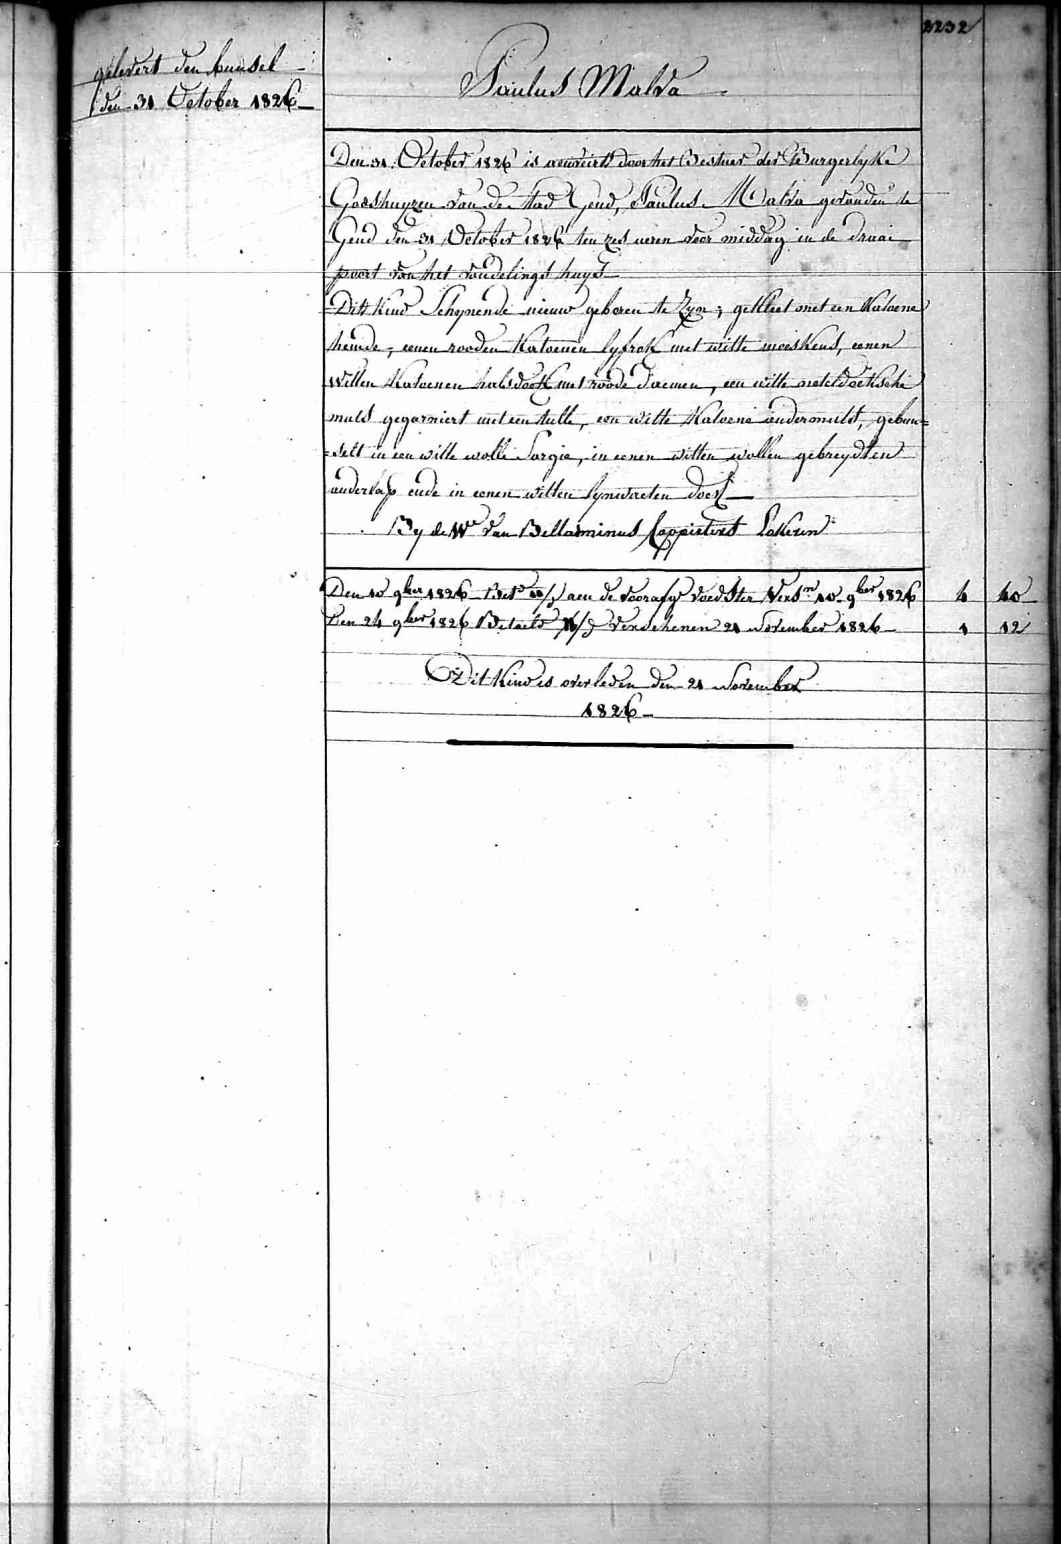 3232
gelevert den bunsel
den 31 October 1826
Paulus Malva
Den 31 October 1826 is aenveirt door het Bestuer der Burgerlyke
Godshuyzen van de stad Gend, Paulus Malva gevonden te
Gend den 31 October 1826 ten zes ueren voor middag in de draai
poort van het vondelings huys
Dit kind Schynende nieuw geboren te zyn; gekleet met een Katoene
hemde, eenen rooden Katoenen lyfrok met witte moeskens, eenen
witten Katoenen halsdoek met roode, een witte neteldoeksche
muts gegarniert met een tulle, een witte Katoene ondermuts, gebun=
=selt in een witte wolle Sargie, in eenen witten wollen gebreydten
onderlap ende in eenen witten lynwaeten doek
By de We van Bellarminus Cappieters Lokeren
Den 10 9ber 1826 aen de voedster 10 9ber 1826 4 40
Den 24 9ber 1826 Betaelt verschenen 21 November 1826 1 12
Dit Kind is overleden den 21 November
1826